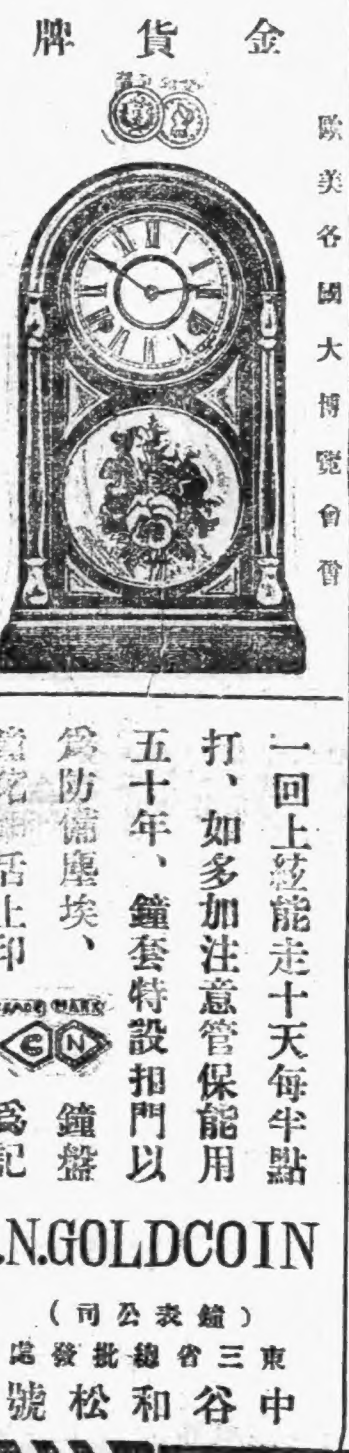 金貨牌
歐美各國大博覽會曾
一回上絃能走十天每半點
打、如多加注意管保能用
五十年、鐘套特設扣門以
為防備塵埃、 鐘盤
印 為記
TRADE MARK
G N
.N.GOLDCOIN
(鐘表公司)
東三省總批發處
中谷和松號